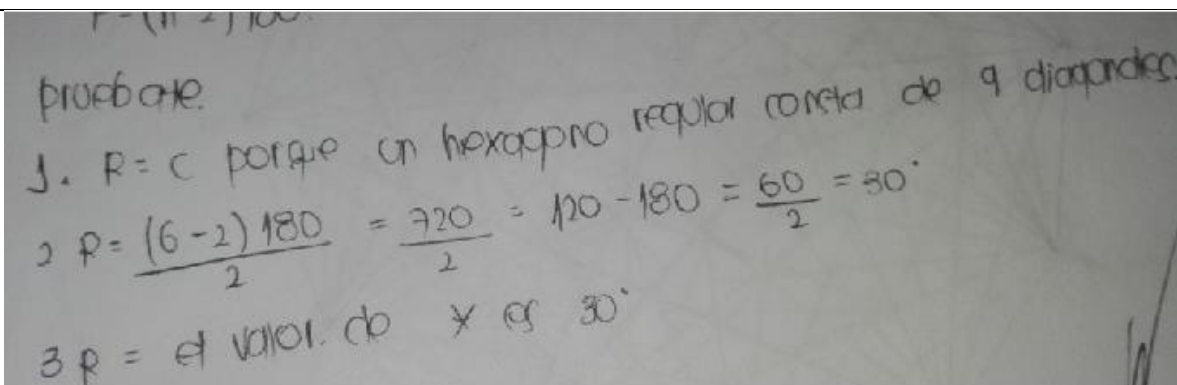 pruebate.
1. R= C porque un hexagono regular consta de 9 diagonales.
2 R= (6-2)180/2 = 720/2 = 120-180 = 60/2 = 30°
3 R = el valor. do x es 30°